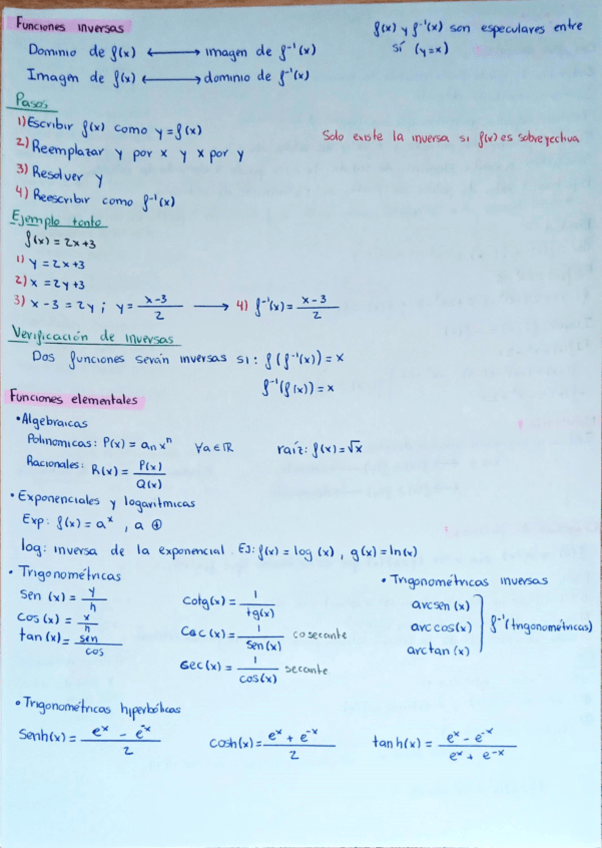 Funciones inversas
Dominio de f(x) ⟷ imagen de f⁻¹(x)
Imagen de f(x) ⟷ dominio de f⁻¹(x)
f(x) y f⁻¹(x) son especulares entre
sí (y=x)
Pasos
1) Escribir f(x) como y=f(x)
2) Reemplazar y por x y x por y
3) Resolver y
4) Reescribir como f⁻¹(x)
Solo existe la inversa si f(x) es sobreyectiva
Ejemplo tonto
f(x) = 2x+3
1) y = 2x+3
2) x = 2y+3
3) x-3 = 2y ; y = (x-3)/2 ⟶ 4) f⁻¹(x) = (x-3)/2
Verificación de inversas
Dos funciones serán inversas si: f(f⁻¹(x)) = x
f⁻¹(f(x)) = x
Funciones elementales
• Algebraicas
Polinomicas: P(x) = aₙxⁿ ∀a∈ℝ raíz: f(x) = √x
Racionales: R(x) = P(x)/Q(x)
• Exponenciales y logaritmicas
Exp: f(x) = aˣ , a ⊕
log: inversa de la exponencial. EJ: f(x) = log(x), g(x) = ln(x)
• Trigonométricas
Sen(x) = y/h
cos(x) = x/h
tan(x) = sen/cos
Cotg(x) = 1/tg(x)
Cac(x) = 1/sen(x) cosecante
Sec(x) = 1/cos(x) secante
• Trigonométricas inversas
arcsen(x)
arccos(x)
arctan(x)
} f⁻¹(trigonométricas)
• Trigonométricas hiperbólicas
Senh(x) = (eˣ - e⁻ˣ)/2
cosh(x) = (eˣ + e⁻ˣ)/2
tanh(x) = (eˣ - e⁻ˣ)/(eˣ + e⁻ˣ)